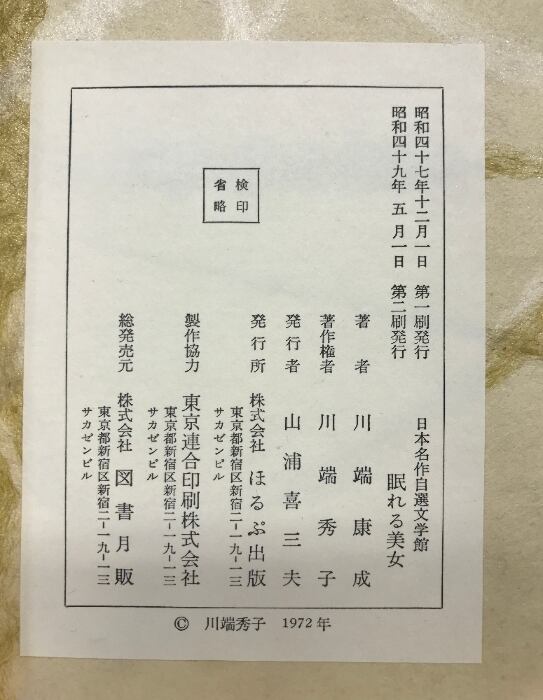 昭和四十七年十二月一日 第一刷発行
昭和四十九年 五 月一日 第二刷発行
日本名作自選文学館
眠れる美女
著者 川端康成
著作権者 川端秀子
発行者 山浦喜三夫
発行所 株式会社 ほるぷ出版
東京都新宿区新宿二−一九−一三
サカゼンビル
製作協力 東京連合印刷株式会社
東京都新宿区新宿二−一九−一三
サカゼンビル
総発売元 株式会社 図書月販
東京都新宿区新宿二−一九−一三
サカゼンビル
検印
省略
© 川端秀子 1972年